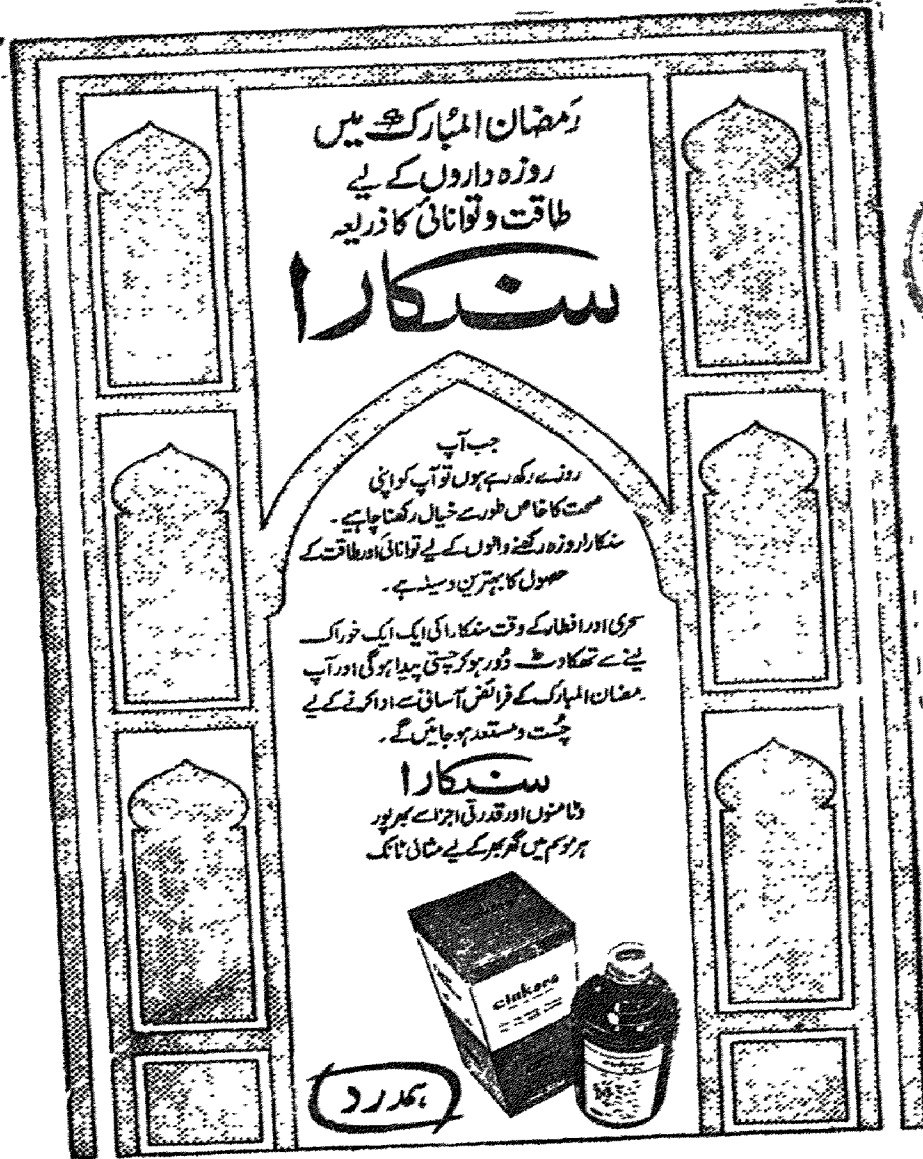 رمضان المبارک میں
روزہ داروں کے لیے
طاقت و توانائی کا ذریعہ
سنکارا
جب آپ
روزے رکھ رہے ہوں تو آپ کو اپنی
صحت کا خاص طور سے خیال رکھنا چاہیے۔
سنکارا روزہ رکھنے والوں کے لیے توانائی اور طاقت کے
حصول کا بہترین وسیلہ ہے۔
سحری اور افطار کے وقت سنکارا کی ایک ایک خوراک
لینے سے تھکاوٹ دُور ہو کر چستی پیدا ہوگی اور آپ
رمضان المبارک کے فرائض آسانی سے ادا کرنے کے لیے
چُست و مستعد ہو جائیں گے۔
سنکارا
وٹامنوں اور قدرتی اجزا سے بھرپور
ہر موسم میں گھر بھر کے لیے مثالی ٹانک
cinkara
ہمدرد